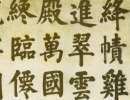 絳幘雞
進翠雲
殿萬國
終臨僊